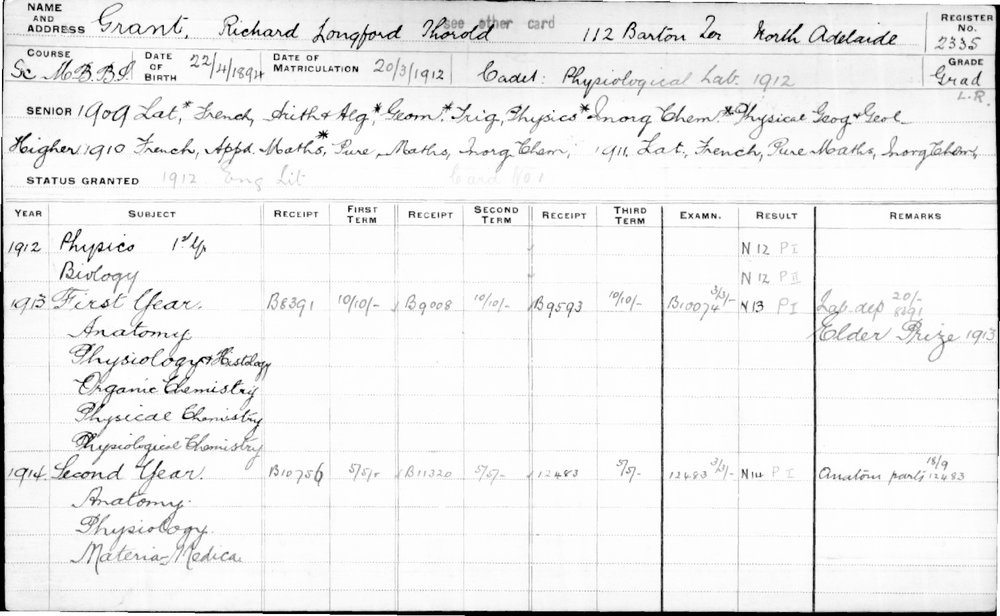 NAME AND ADDRESS Grant, Richard Longford Thorold see other card 112 Barton Ter North Adelaide REGISTER No. 2335
COURSE Sc. M.B.B.S. DATE OF BIRTH 22/4/1894 DATE OF MATRICULATION 20/3/1912 Cadet: Physiological Lab. 1912 GRADE Grad
L.R.
SENIOR 1909 Lat,* French, Arith & Alg,* Geom.* Trig, Physics* Inorg Chem.* Physical Geog & Geol
Higher 1910 French, Appd. Maths,* Pure Maths, Inorg Chem; 1911 Lat, French, Pure Maths, Inorg Chem,
STATUS GRANTED 1912 Eng Lit Card No 1
YEAR SUBJECT RECEIPT FIRST TERM RECEIPT SECOND TERM RECEIPT THIRD TERM EXAMN. RESULT REMARKS
1912 Physics 1st Yr N 12 P I
Biology N 12 P II
1913 First Year. B8391 10/10/- B9008 10/10/- B9593 10/10/- B10074 3/3/- N 13 P I Lab. dep 20/- 8391
Anatomy Elder Prize 1913
Physiology & Histology
Organic Chemistry
Physical Chemistry
Physiological Chemistry
1914 Second Year. B10756 5/5/- B11320 5/5/- 12483 5/5/- 12483 3/3/- N 14 P I Anatom parts 18/9 12483
Anatomy
Physiology.
Materia-Medica